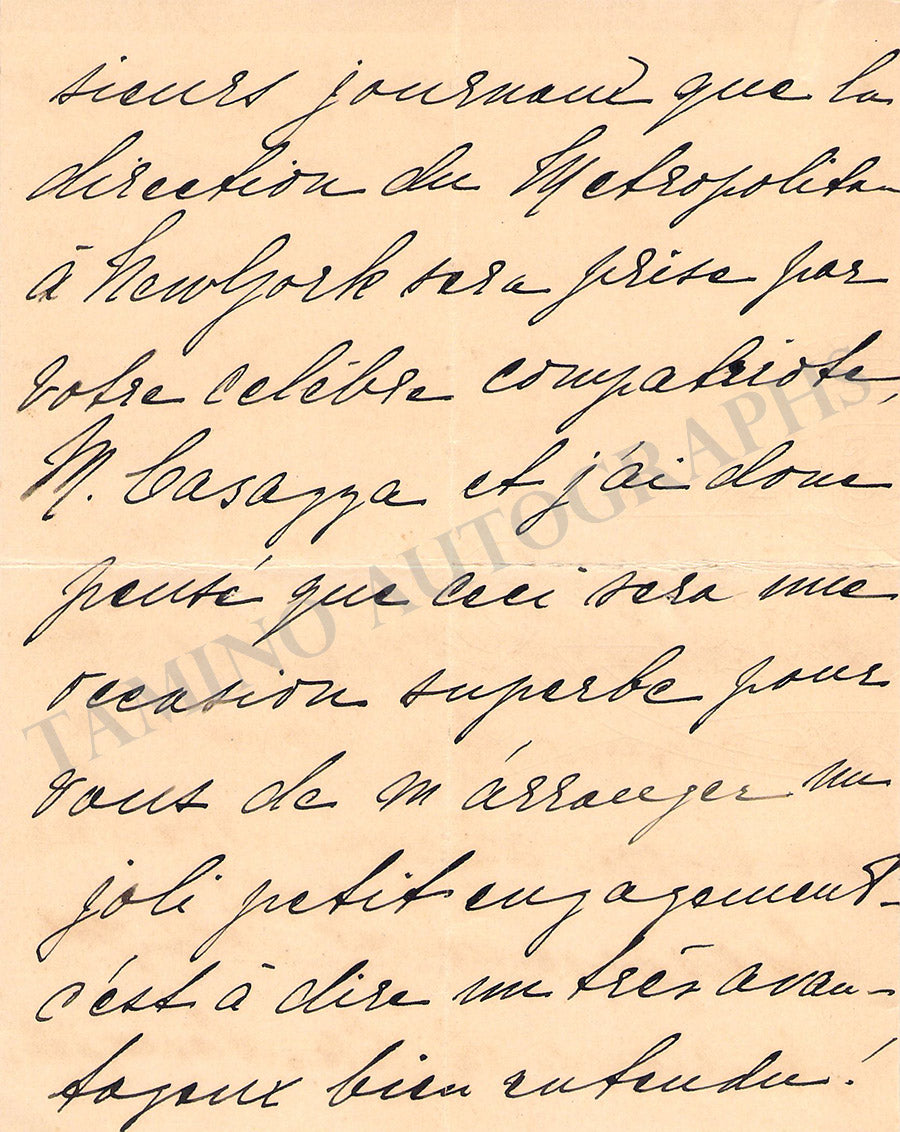 sieurs journaux que la
direction du Metropolitan
à New York sera prise par
votre celèbre compatriote,
M. Casazza et j'ai donc
pensé que ceci sera une
occasion superbe pour
vous de m'árranger un
joli petit engagement-
c'est à dire un très avan-
tageux bien entendu!
TAMINO AUTOGRAPHS